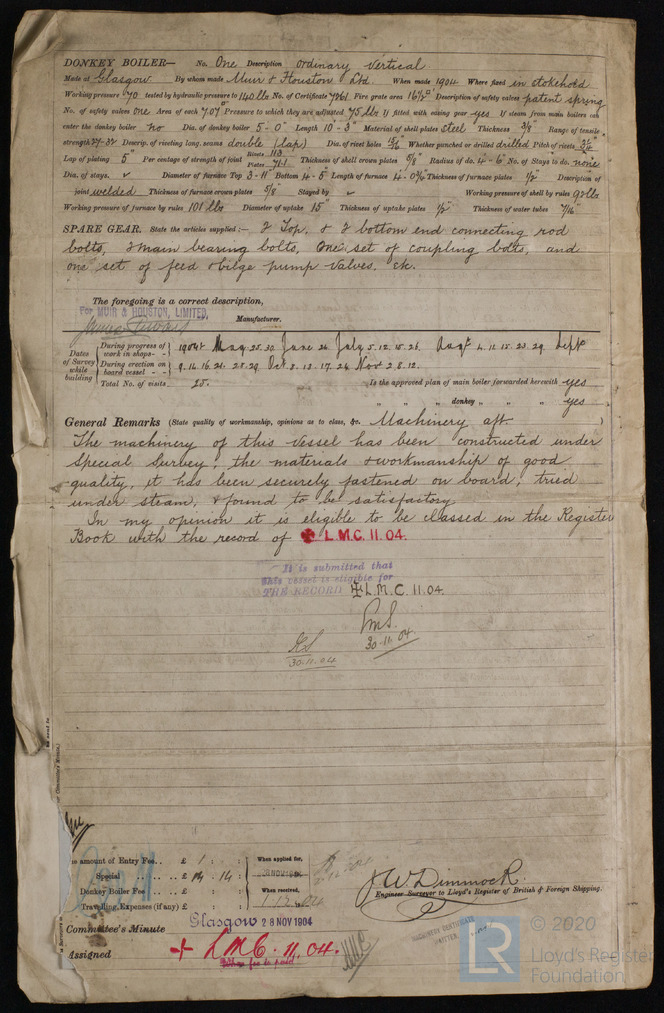 DONKEY BOILER— No. One Description ordinary vertical
Made at Glasgow By whom made Muir & Houston Ltd. When made 1904 Where fixed in stokehold
Working pressure 70 tested by hydraulic pressure to 140 lbs No. of Certificate 7261 Fire grate area 16½ □' Description of safety valves patent spring
No. of safety valves one Area of each 7.07 □" Pressure to which they are adjusted 75 lbs If fitted with easing gear yes If steam from main boilers can
enter the donkey boiler no Dia. of donkey boiler 5-0" Length 10-3" Material of shell plates steel Thickness 3/8" Range of tensile
strength 27-32 Descrip. of riveting long. seams double (lap) Dia. of rivet holes Whether punched or drilled drilled Pitch of rivets
Lap of plating 5" Per centage of strength of joint Rivets 113 Plates 71.1 Thickness of shell crown plates 5/8" Radius of do. 4-6" No. of Stays to do. none
Dia. of stays. ✓ Diameter of furnace Top 3-11" Bottom 4-5" Length of furnace Thickness of furnace plates 1/2" Description of
joint welded Thickness of furnace crown plates 5/8" Stayed by ✓ Working pressure of shell by rules 92 lbs
Working pressure of furnace by rules 101 lbs Diameter of uptake 15" Thickness of uptake plates 1/2" Thickness of water tubes 7/16"
SPARE GEAR. State the articles supplied:— 2 Top, & 2 bottom end connecting rod
bolts, 2 main bearing bolts, One set of coupling bolts, and
one set of feed & bilge pump valves. etc.
The foregoing is a correct description,
For MUIR & HOUSTON, LIMITED,
Manufacturer.
Dates of Survey while building
During progress of work in shops- - 1904 May 25. 30. June 24. July 5. 12. 15. 26. Augt 4. 11. 15. 23. 29. Sept
During erection on board vessel - - 9. 14. 16. 21. 25. 29. Oct 8. 13. 17. 24 Nov 2. 8. 12.
Total No. of visits 25. Is the approved plan of main boiler forwarded herewith yes
" " " donkey " " " yes
General Remarks (State quality of workmanship, opinions as to class, &c. Machinery aft.
The machinery of this vessel has been constructed under
Special Survey; the materials & workmanship of good
quality, it has been securely fastened on board, tried
under steam, & found to be satisfactory
In my opinion it is eligible to be classed in the Register
Book with the record of ✠ L.M.C. 11.04.
It is submitted that
this vessel is eligible for
THE RECORD ✠ L.M.C. 11.04.
30.11.04
30.11.04
amount of Entry Fee.. £ 1 : :
Special .. .. .. £ 14 : 14 :
Donkey Boiler Fee .. .. £ : :
Travelling Expenses (if any) £ : :
When applied for,
When received,
J. W. Dimmock.
Engineer Surveyor to Lloyd's Register of British & Foreign Shipping.
Committee's Minute Glasgow 28 NOV 1904
Assigned + L.M.C. 11.04.
MACHINERY CERTIFICATE
WRITTEN
LR
© 2020
Lloyd's Register
Foundation